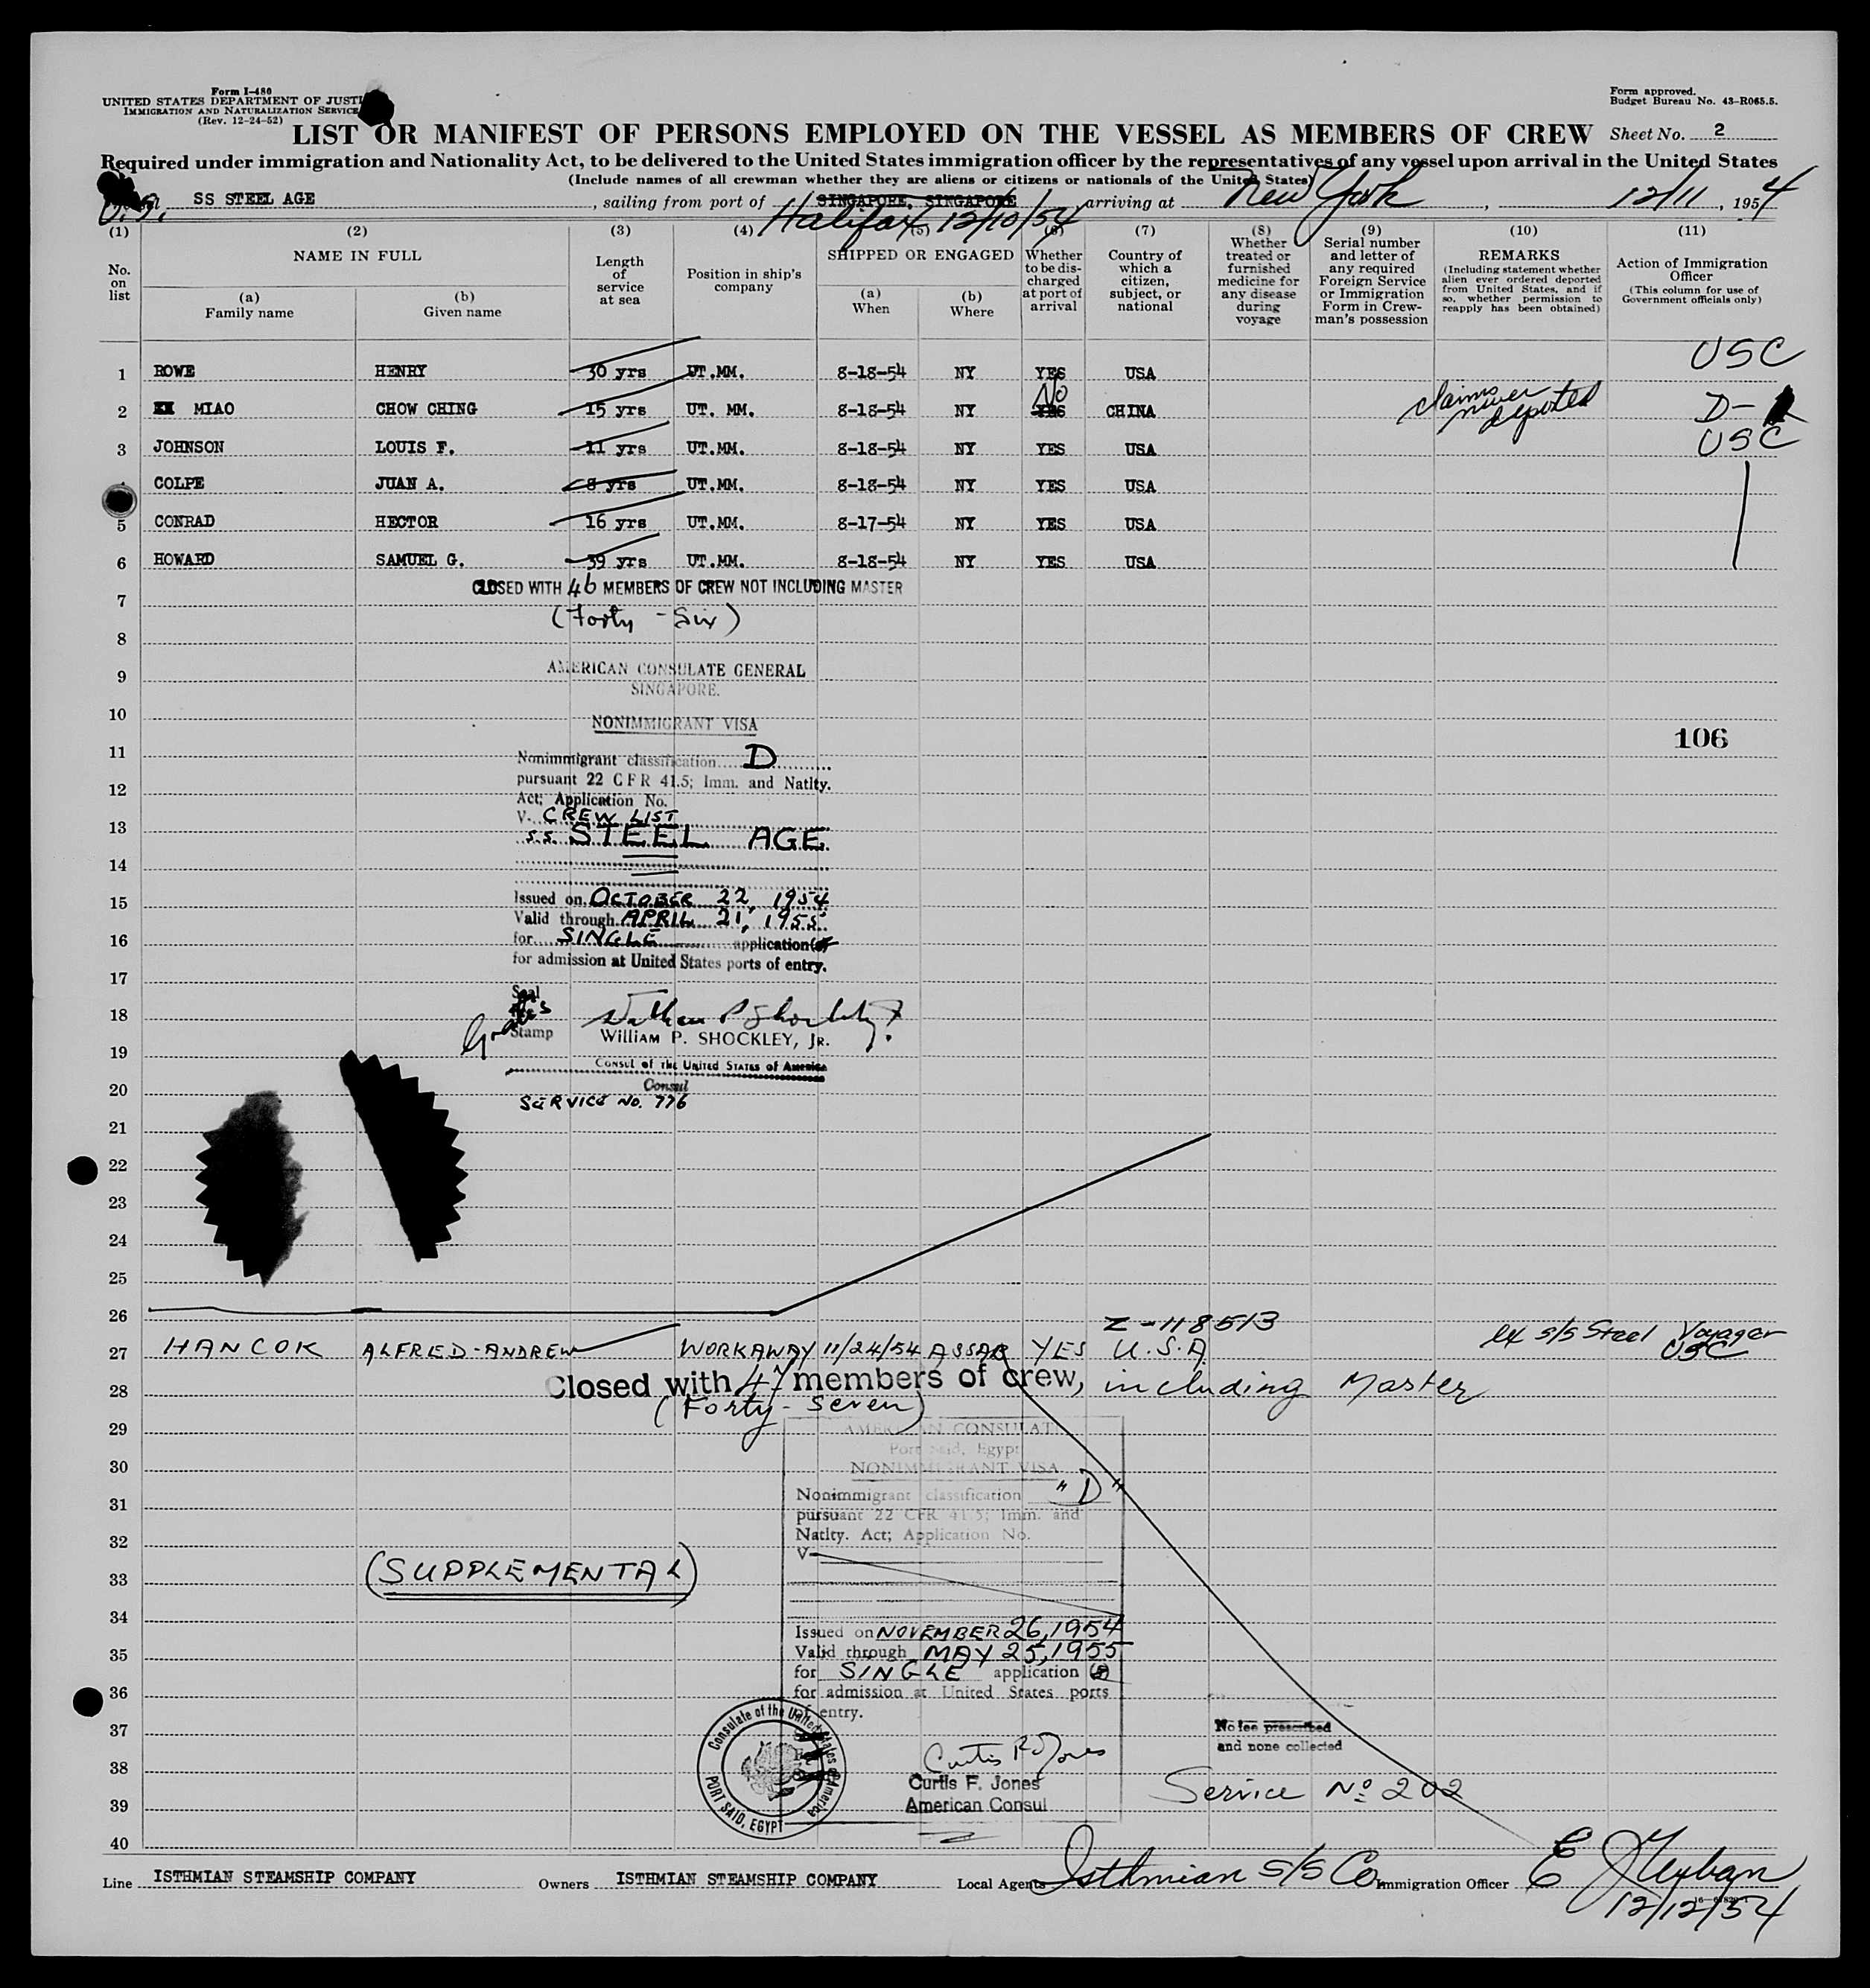 Form I-480
UNITED STATES DEPARTMENT OF JUSTI
IMMIGRATION AND NATURALIZATION SERVICE
(Rev. 12-24-52)
Form approved.
Budget Bureau No. 43-R065.5.
LIST OR MANIFEST OF PERSONS EMPLOYED ON THE VESSEL AS MEMBERS OF CREW
Sheet No. 2
Required under immigration and Nationality Act, to be delivered to the United States immigration officer by the representatives of any vessel upon arrival in the United States
(Include names of all crewman whether they are aliens or citizens or nationals of the United States)
U.S. SS STEEL AGE , sailing from port of SINGAPORE, SINGAPORE arriving at New York , 12/11 , 1954
Halifax 12/10/54
(1) (2) (3) (4) (5) (6) (7) (8) (9) (10) (11)
No. on list
NAME IN FULL
(a) Family name
(b) Given name
Length of service at sea
Position in ship's company
SHIPPED OR ENGAGED
(a) When
(b) Where
Whether to be discharged at port of arrival
Country of which a citizen, subject, or national
Whether treated or furnished medicine for any disease during voyage
Serial number and letter of any required Foreign Service or Immigration Form in Crewman's possession
REMARKS
(Including statement whether alien ever ordered deported from United States, and if so, whether permission to reapply has been obtained)
Action of Immigration Officer
(This column for use of Government officials only)
1 ROWE HENRY 30 yrs UT.MM. 8-18-54 NY YES USA USC
2 MIAO CHOW CHING 15 yrs UT. MM. 8-18-54 NY YES No CHINA claims never deported D-
3 JOHNSON LOUIS F. 11 yrs UT.MM. 8-18-54 NY YES USA USC
COLPE JUAN A. 8 yrs UT.MM. 8-18-54 NY YES USA
5 CONRAD HECTOR 16 yrs UT.MM. 8-17-54 NY YES USA
6 HOWARD SAMUEL G. 39 yrs UT.MM. 8-18-54 NY YES USA
CLOSED WITH 46 MEMBERS OF CREW NOT INCLUDING MASTER
7
(Forty - Six)
8
AMERICAN CONSULATE GENERAL
9
SINGAPORE.
10
NONIMMIGRANT VISA
106
11
Nonimmigrant classification D
pursuant 22 CFR 41.5; Imm. and Natlty.
12
Act; Application No.
V. CREW LIST
13
S.S. STEEL AGE
14
15
Issued on OCTOBER 22, 1954
Valid through APRIL 21, 1955
16
for SINGLE application(s)
for admission at United States ports of entry.
17
Seal
18
Gratis
Stamp
William P. SHOCKLEY, JR.
19
CONSUL OF THE UNITED STATES OF AMERICA
Consul
20
SERVICE No. 776
21
22
23
24
25
26
Z-118513
27 HANCOK ALFRED-ANDREW WORKAWAY 11/24/54 ASSAB YES U.S.A. ex S/S Steel Voyager USC
Closed with 47 members of crew, including Master
28
(Forty-Seven)
29
AMERICAN CONSULAT
Port Said, Egypt
30
NONIMMIGRANT VISA
31
Nonimmigrant classification "D"
pursuant 22 CFR 41.5; Imm. and
Natlty. Act; Application No.
32
V-
33
(SUPPLEMENTAL)
34
Issued on NOVEMBER 26, 1954
35
Valid through MAY 25, 1955
for SINGLE application (s)
36
for admission at United States ports
of entry.
37
No fee prescribed
and none collected
Consulate of the United States of America
PORT SAID, EGYPT
38
Curtis F. Jones
Curtis F. Jones
Service No. 202
39
American Consul
40
Line ISTHMIAN STEAMSHIP COMPANY Owners ISTHMIAN STEAMSHIP COMPANY Local Agents Isthmian S/S Co. Immigration Officer
12/12/54